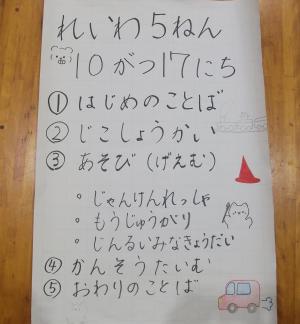 れいわ5ねん
10がつ17にち
① はじめのことば
② じこしょうかい
③ あそび(げえむ)
• じゃんけんれっしゃ
• もうじゅうがり
• じんるいみなきょうだい
④ かんそうたいむ
⑤ おわりのことば